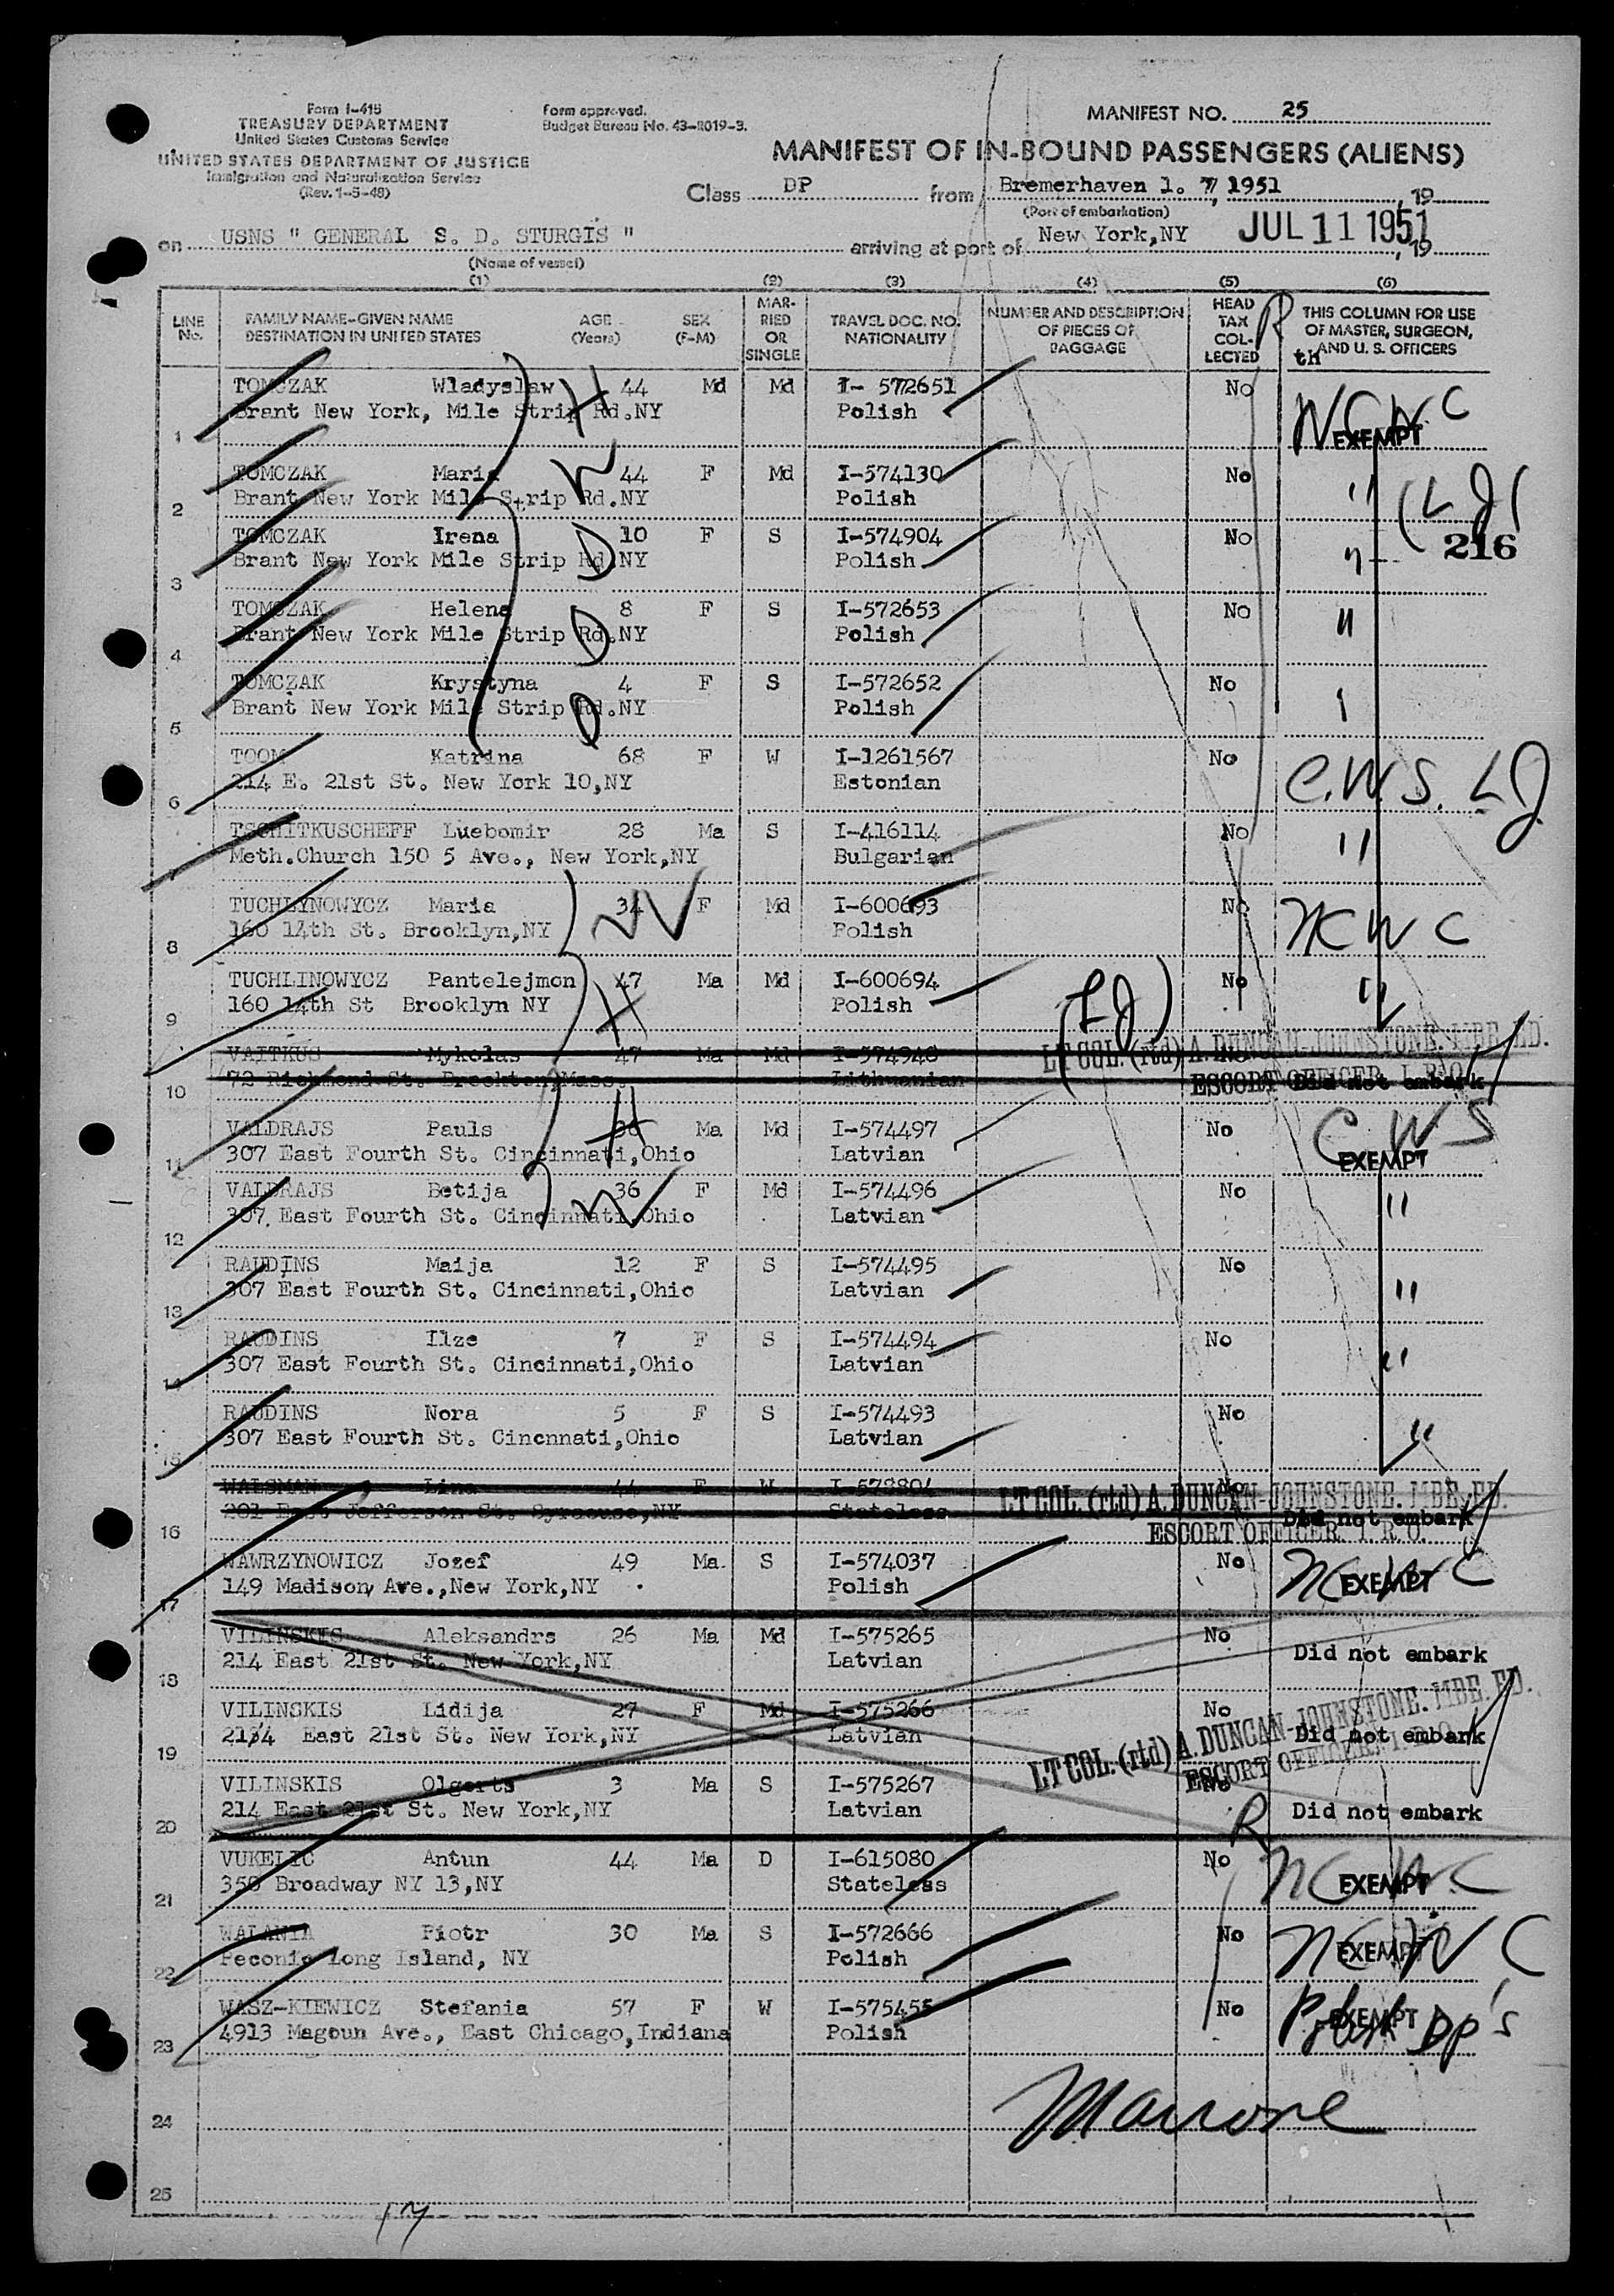 Form I-415
TREASURY DEPARTMENT
United States Customs Service
UNITED STATES DEPARTMENT OF JUSTICE
Immigration and Naturalization Service
(Rev. 1-5-48)
Form approved.
Budget Bureau No. 43-R019-3.
MANIFEST NO. 25
MANIFEST OF IN-BOUND PASSENGERS (ALIENS)
Class DP from Bremerhaven 1. 7, 1951, 19
(Port of embarkation)
on USNS " GENERAL S. D. STURGIS " arriving at port of New York,NY JUL 11 1951, 19
(Name of vessel)
(1) (2) (3) (4) (5) (6)
LINE No. FAMILY NAME-GIVEN NAME DESTINATION IN UNITED STATES AGE (Years) SEX (F-M) MARRIED OR SINGLE TRAVEL DOC. NO. NATIONALITY NUMBER AND DESCRIPTION OF PIECES OF BAGGAGE HEAD TAX COLLECTED THIS COLUMN FOR USE OF MASTER, SURGEON, AND U. S. OFFICERS
R th
TOMCZAK Wladyslaw 44 Md Md I- 572651 No NCWC
1 Brant New York, Mile Strip Rd.NY H Polish EXEMPT
TOMCZAK Maria 44 F Md I-574130 No " (LJ)
2 Brant New York Mile Strip Rd.NY W Polish
TOMCZAK Irena 10 F S I-574904 No " 216
3 Brant New York Mile Strip Rd.NY D Polish
TOMCZAK Helena 8 F S I-572653 No "
4 Brant New York Mile Strip Rd.NY D Polish
TOMCZAK Krystyna 4 F S I-572652 No
5 Brant New York Mile Strip Rd.NY D Polish
TOOM Katrina 68 F W I-1261567 No C.W.S. LJ
6 214 E. 21st St. New York 10,NY Estonian
TSCHITKUSCHEFF Luebomir 28 Ma S I-416114 No "
7 Meth.Church 150 5 Ave., New York,NY Bulgarian
TUCHLYNOWYCZ Maria 34 W F Md I-600693 No NCWC
8 160 14th St. Brooklyn,NY Polish
TUCHLINOWYCZ Pantelejmon 47 Ma Md I-600694 No "
9 160 14th St Brooklyn NY H Polish (LJ)
VAITKUS Mykolas 47 Ma Md I-574948 No LT COL. (rtd) A. DUNCAN-JOHNSTONE. MBE. ED.
10 72 Richmond St. Brockton,Mass. Lithuanian ESCORT OFFICER I. R. O. Did not embark
VALDRAJS Pauls 36 Ma Md I-574497 No CWS
11 307 East Fourth St. Cincinnati,Ohio H Latvian EXEMPT
VALDRAJS Betija 36 F Md I-574496 No "
12 307 East Fourth St. Cincinnati,Ohio W Latvian
RAUDINS Maija 12 F S I-574495 No
13 307 East Fourth St. Cincinnati,Ohio Latvian "
RAUDINS Ilze 7 F S I-574494 No
14 307 East Fourth St. Cincinnati,Ohio Latvian "
RAUDINS Nora 5 F S I-574493 No
15 307 East Fourth St. Cincnnati,Ohio Latvian "
WALSMAN Lina 44 F W I-578804 No LT COL. (rtd) A. DUNCAN-JOHNSTONE. MBE. ED.
16 201 East Jefferson St. Syracuse,NY Stateless Did not embark ESCORT OFFICER. I. R. O.
WAWRZYNOWICZ Jozef 49 Ma S I-574037 No NCWC
17 149 Madison Ave.,New York,NY Polish EXEMPT
VILINSKIS Aleksandrs 26 Ma Md I-575265 No
18 214 East 21st St. New York,NY Latvian Did not embark
VILINSKIS Lidija 27 F Md I-575266 No
19 2134 East 21st St. New York,NY Latvian Did not embark
LT COL. (rtd) A. DUNCAN-JOHNSTONE. MBE. ED.
ESCORT OFFICER. I. R. O.
VILINSKIS Olgerts 3 Ma S I-575267 No
20 214 East 21st St. New York,NY Latvian Did not embark
R
VUKELIC Antun 44 Ma D I-615080 No NCWC
21 350 Broadway NY 13,NY Stateless EXEMPT
WALANIA Piotr 30 Ma S I-572666 No NCWC
22 Peconic Long Island, NY Polish EXEMPT
WASZ-KIEWICZ Stefania 57 F W I-575455 No Polish DP's
23 4913 Magoun Ave., East Chicago,Indiana Polish EXEMPT
24 Marrone
25
17